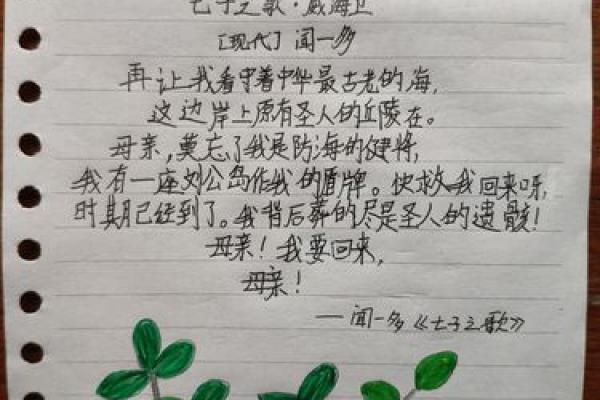 七子之歌·威海卫
[现代] 闻一多
再让我看守着中华最古老的海,
这边岸上原有圣人的丘陵在。
母亲,莫忘了我是防海的健将,
我有一座刘公岛作我的盾牌。快救我回来呀,
时期已经到了。我背后葬的尽是圣人的遗骸!
母亲!我要回来,
母亲!
— 闻一多《七子之歌》